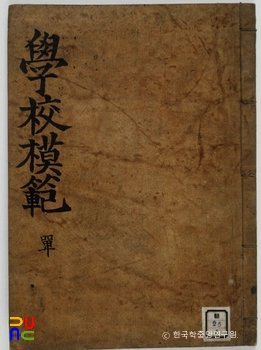 學校模範
單
© 한국학중앙연구원